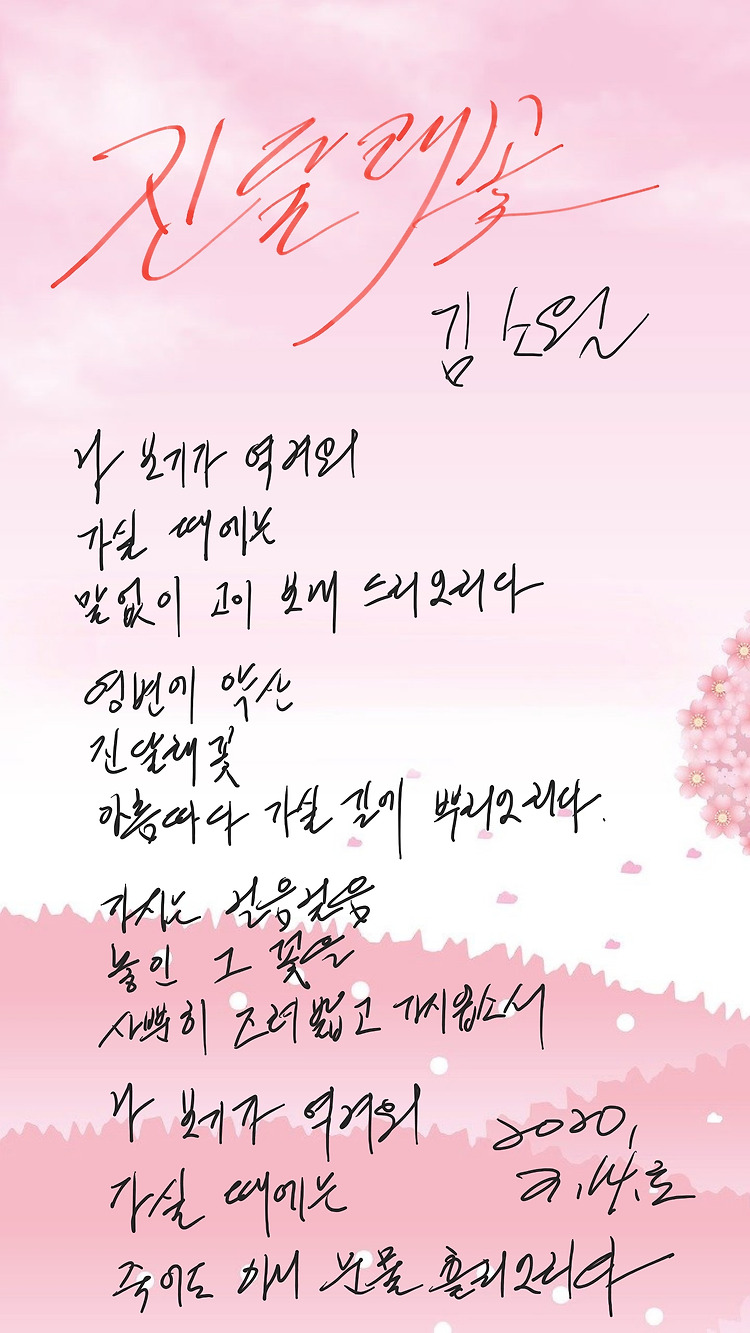 진달래꽃
김소월
나 보기가 역겨워
가실 때에는
말없이 고이 보내 드리오리다
영변에 약산
진달래꽃
아름따다 가실 길에 뿌리오리다.
가시는 걸음걸음
놓인 그 꽃을
사뿐히 즈려밟고 가시옵소서
나 보기가 역겨워
가실 때에는
2020,
죽어도 아니 눈물 흘리오리다